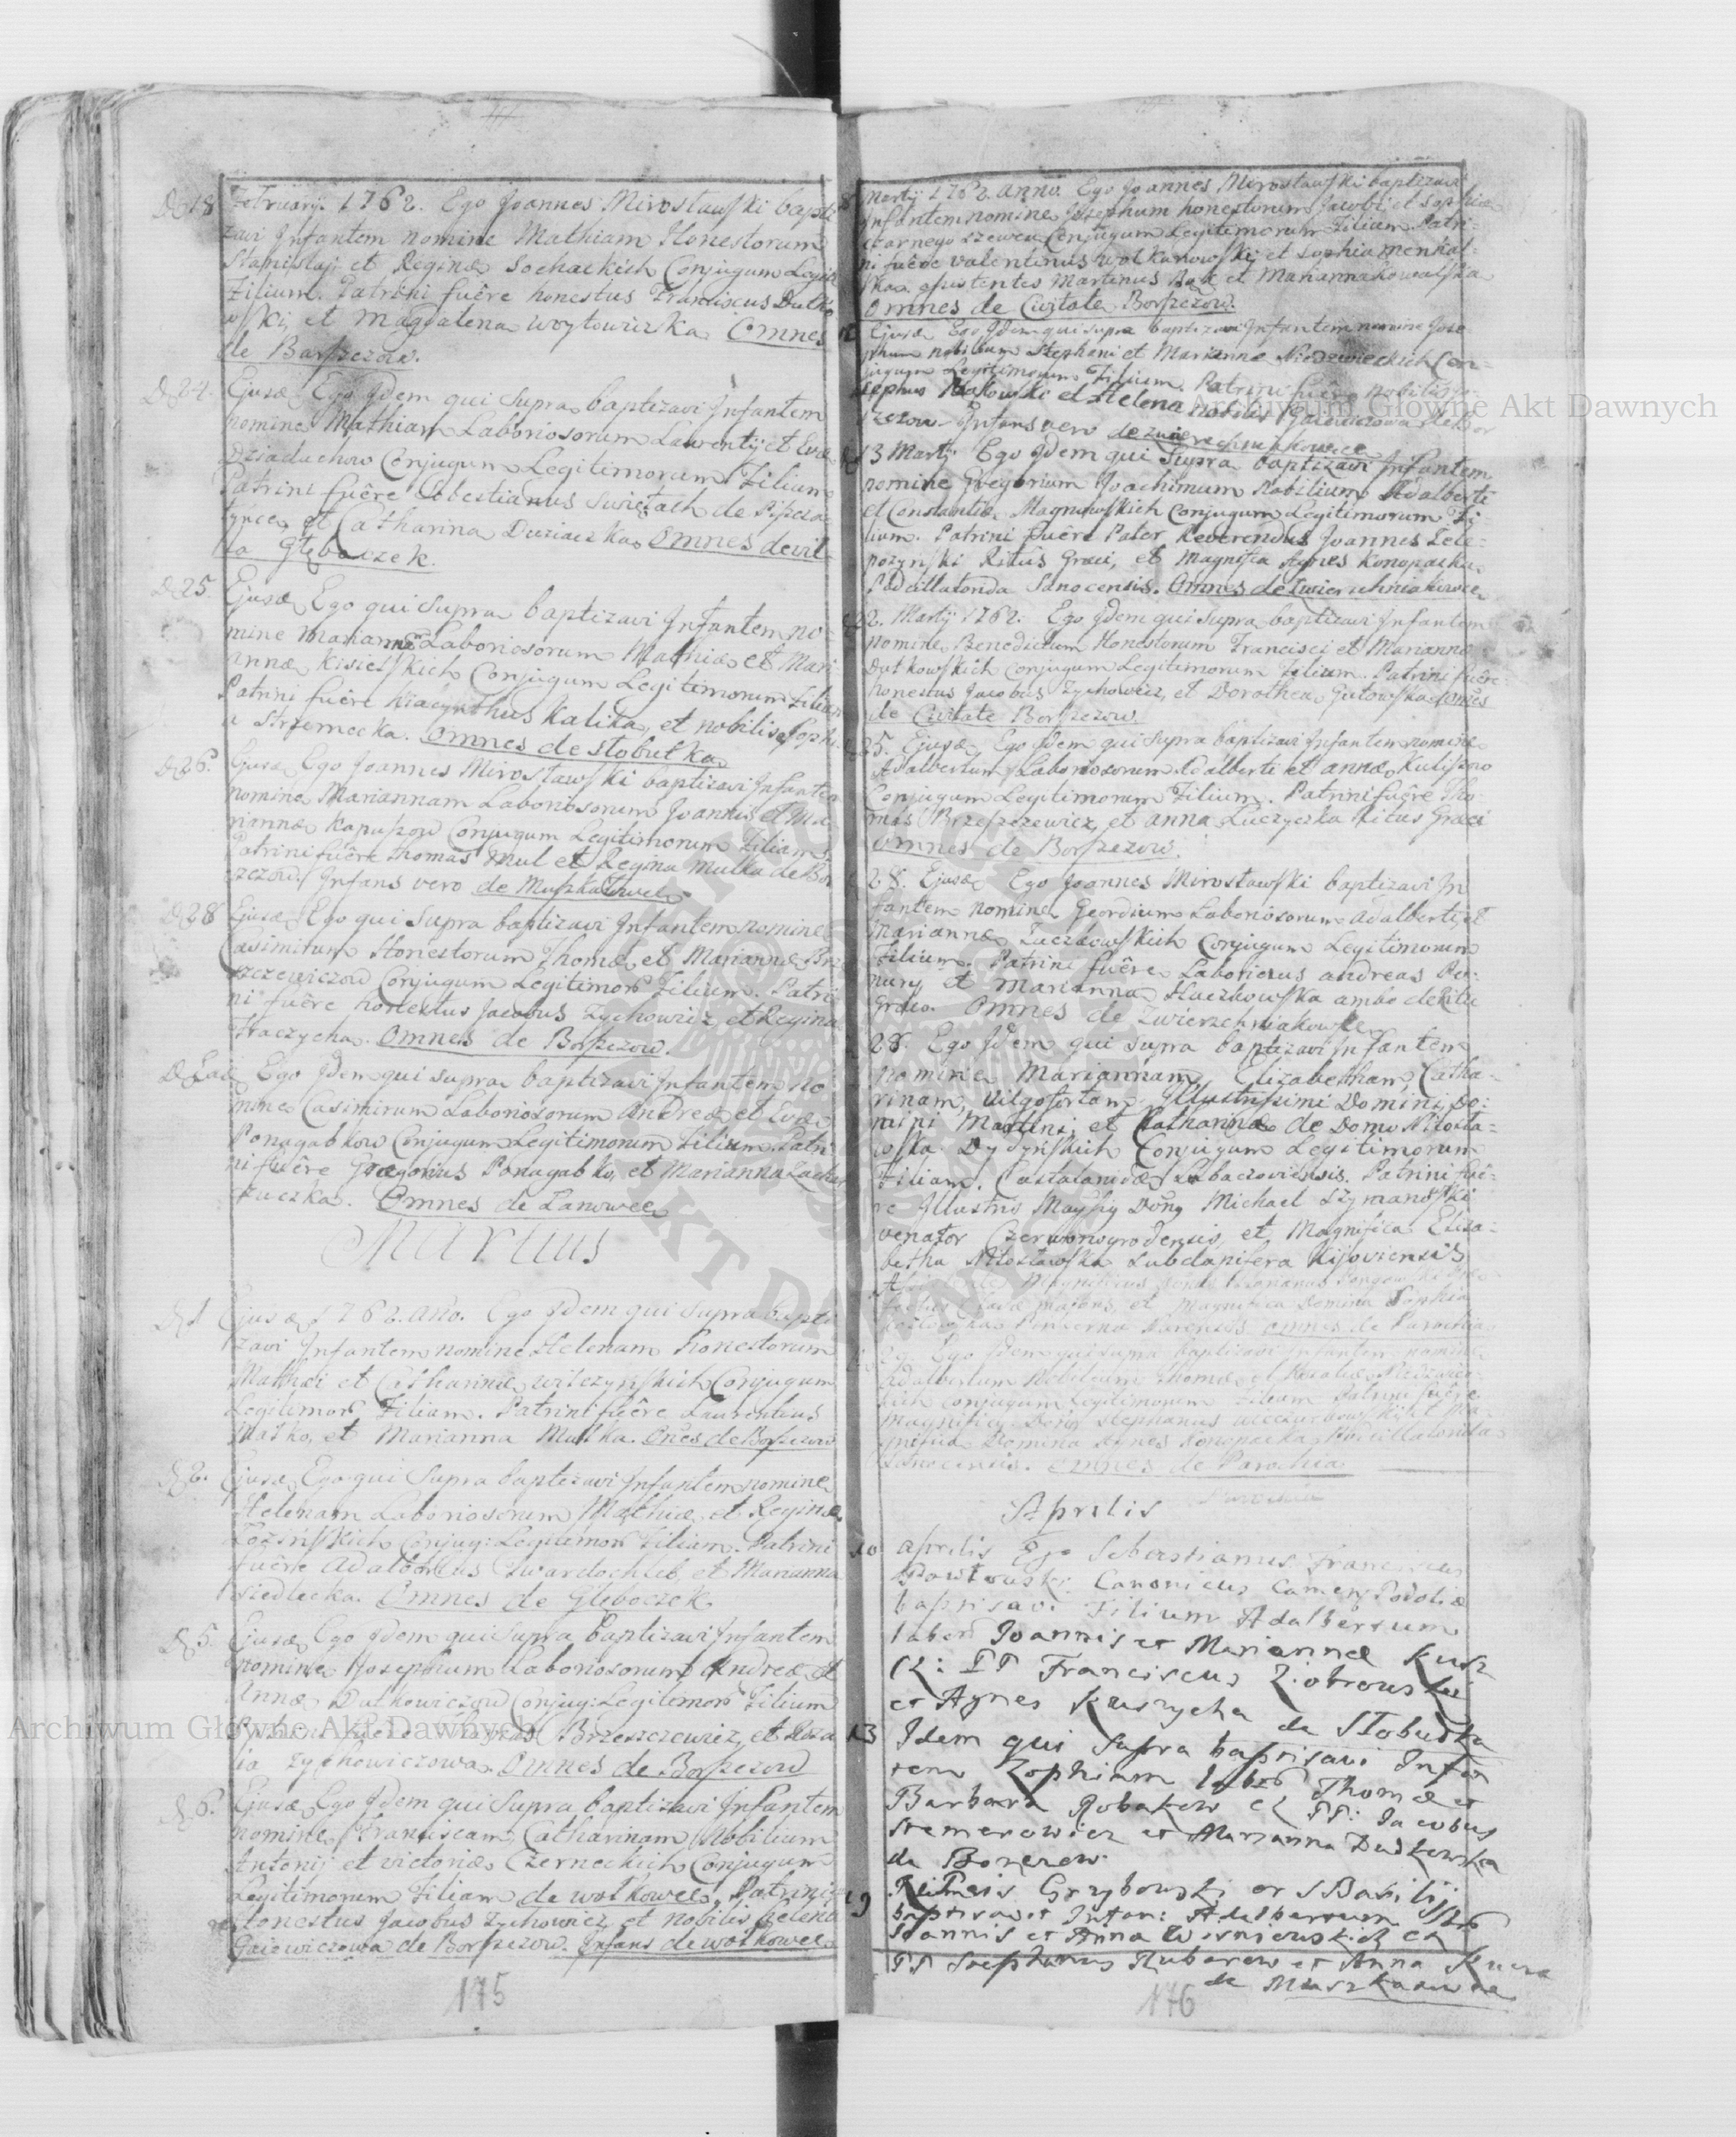 D 18 February 1762. Ego Joannes Mirosławski bapti
zavi Infantem nomine Mathiam Honestorum
Stanislaj et Reginæ Sochackich Conjugum Legit
Filium. Patrini fuêre honestus Franciscus Dutko
wski, et Magdalena Woytowiczka Omnes
de Borszczow.
D 24. Ejusd Ego Idem qui Supra baptizavi Infantem
nomine Mathiam Laboriosorum Laurentij et Evæ
Dziaduchow Conjugum Legitimorum Filium
Patrini fuêre Sebestianus Swiętach de Piszcza
tynce, et Catharina Duziaczka Omnes de vil
la Głęboczek.
D 25. Ejusd Ego qui Supra baptizavi Infantem no-
mine Mariannæ Laboriosorum Mathiæ et Mari
annæ Kisielskich Conjugum Legitimorum Filiam
Patrini fuêre Hiacynthus Kalika, et nobilis Sophi
a Strzemecka. Omnes de Słobutka
D 26. Ejusd Ego Joannes Mirosławski baptizavi Infantem
nomine Mariannam Laboriosorum Joannis et Ma
riannæ Kapuszow Conjugum Legitimorum Filiam.
Patrini fuêre Thomas Mul et Regina Mulka de Bor
szczow Infans vero de Muszkatowce
D 28 Ejusd Ego qui Supra baptizavi Infantem nomine
Casimirum Honestorum Thomæ et Mariannæ Brze
szczewiczow Conjugum Legitimor Filium. Patri
ni fuêre honestus Jacobus Zychowicz et Regina
Tkaczycha. Omnes de Borszczow.
D Ead Ego Idem qui supra baptizavi Infantem no
mine Casimirum Laboriosorum Andreæ et Evæ
Ponagabkow Conjugum Legitimorum Filium Patri
ni fuêre Gregorius Ponagabko, et Marianna
Omnes de Lanowce
Martius
D 1 Ejusd 1762. Ano. Ego Idem qui supra bapti
zavi Infantem nomine Helenam Honestorum
Mathæi et Catharinæ Wilczynskich Conjugum
Legitimor Filiam. Patrini fuêre Laurentius
Matko, et Marianna Mulka. Ones de Borszczow
D 2. Ejusd Ego qui Supra baptizavi Infantem nomine
Helenam Laboriosorum Mathiæ et Reginæ
Conjug: Legitimor Filiam. Patrini
fuêre Adalbertus Twardochleb, et Marianna
Siedlecka. Omnes de Głęboczek.
D 5. Ejusd Ego Idem qui Supra baptizavi Infantem
nomine Josephum Laboriosorum Andreæ et
Annæ Dutkowiczow Conjug: Legitimor Filium
Patrini fuêre Thomas Brzeszczewicz, et Roza
lia Zychowiczowa. Omnes de Borszczow
D 6. Ejusd Ego Idem qui Supra baptizavi Infantem
nomine Franciscam, Catharinam Nobilium
Antonij et Victoriæ Czerneckich Conjugum
Legitimorum Filiam de Wołkowce. Patrini
Honestus Jacobus Zychowicz, et nobilis Helena
Gaiewiczowa de Borszczow. Infans de Wołkowce.
175
8 Martij 1762. Anno. Ego Joannes Mirosławski baptizavi
Infantem nomine Josephum honestorum Jacobi et Sophiæ
Czarnego Szewca Conjugum Legitimorum Filium Patri-
ni fuêre Valentinus Wołkanowski, et Sophia
assistentes Martinus et Marianna Kowalska
Omnes de Civitate Borszczow.
Ejusd Ego Idem qui supra baptizavi Infantem nomine Jose-
phum nobilium Stephani et Mariannæ Niedzwieckich Con-
jugum Legitimorum Filium. Patrini fuêre nobilis Jo-
sephus et Helena nobilis Gaiewiczowa de Bor
szczow Infans vero de Zwierzchniakowce
13 Martij Ego Idem qui Supra baptizavi Infantem
nomine Gregorium Joachimum Nobilium Adalberti
et Constantiæ Magnuskich Conjugum Legitimorum Fi-
lium. Patrini fuêre Pater Reverendus Joannes Lele-
Ritus Græci, et Magnifica Agnes Konopacka
Podcillatorida Sanocensis. Omnes de Zwierzchniakowce
22. Martij 1762. Ego Idem qui Supra baptizavi Infantem
nomine Benedictum Honestorum Francisci et Mariannæ
Dutkowskich Conjugum Legitimorum Filium. Patrini fuêre
honestus Jacobus Zychowicz, et Dorothea Gutowska Omnes
de Civitate Borszczow.
25. Ejusd Ego Idem qui Supra baptizavi Infantem nomine
Adalbertum Laboriosorum Adalberti et Annæ Kuliszow
Conjugum Legitimorum Filium. Patrini fuêre Tho-
mas Brzeszczewicz, et Anna Luczycka Ritus Græci
Omnes de Borszczow.
28. Ejusd Ego Joannes Mirosławski baptizavi In
fantem nomine Geordium Laboriosorum Adalberti et
Mariannæ Conjugum Legitimorum
Filium. Patrini fuêre Laboriosus Andreas Po-
nury et Marianna Huczkowska ambo de Ritu
Græco. Omnes de Zwierzchniakowce
28. Ego Idem qui Supra baptizavi Infantem
nomine Mariannam, Elizabetham, Catha-
rinam, Vilgofortam Illustrissimi Domini, Do-
mini Martini, et Catharinæ de Domo Miłosła-
wska Dydynskich Conjugum Legitimorum
Filiam. Castalanidæ Lubaczoviensis. Patrini fuê-
re Illustris Magfcg Dong Michael Szymanski
Venator Czerwonogrodensis, et Magnifica Eliza-
betha Miłosławska Subdapifera Kijoviensis
Magnificus
et Magnifica Domina Sophia
Omnes de Parochia
29. Ego Idem qui supra baptizavi Infantem nomine
Adalbertum Nobilium Thomæ et Rosaliæ Niedzwiec-
kich Conjugum Legitimorum Filium Patrini fuêre
Magnificg Dong Stephanus et Ma-
gnifica Domina Agnes Konopacka Podcillatorida
Sanocensis. Omnes de Parochia
Aprilis
10 Aprilis Ego Sebastianus Franciscus
Pawłowski Canonicus Camen: Podoliæ
baptisavi Filium Adalbertum
labor Joannis et Mariannæ Kusz
CL: PP Franciscus Ziobrowski
et Agnes Kuszycha de Słobudka
13 Idem qui supra baptisavi Infan
tem Zophiam labor Thomæ et
Barbara Robakow CL PP: Jacobus
Stemerowicz et Marianna Dudkowska
de Borszczow.
19 Grzybowski or S Basilij
baptisavit Infan: Adalbertum
Joannis et Anna Wisniowskich CL
PP Stephanus Rubarow et Anna
de Muszkatowce
176
Archiwum Główne Akt Dawnych
Archiwum Główne Akt Dawnych